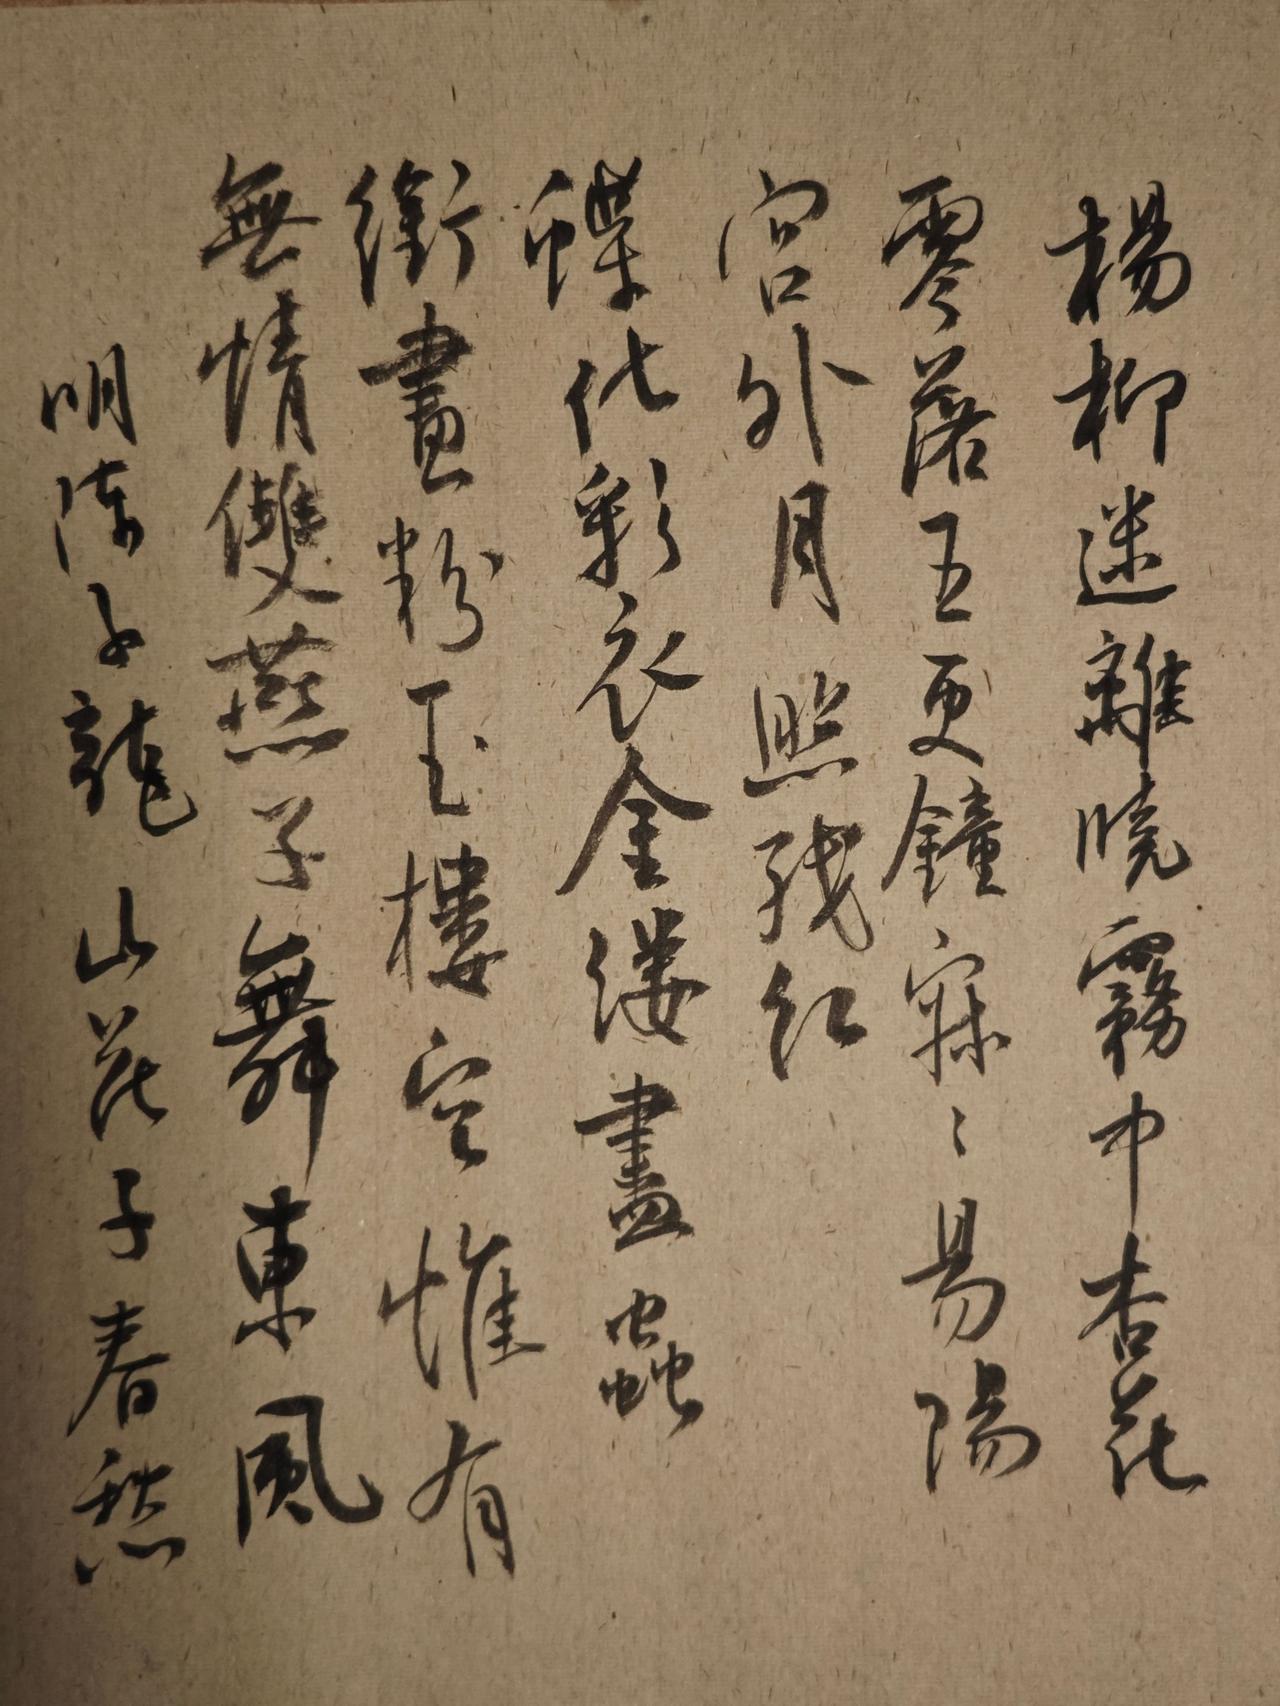 楊柳迷離曉霧中杏花
零落五更鐘寂〻易陽
宫外月照残红
蝶化彩衣金缕盡蟲
銜畫粉玉樓空惟有
無情雙燕子舞東風
明陈子龍山花子春愁